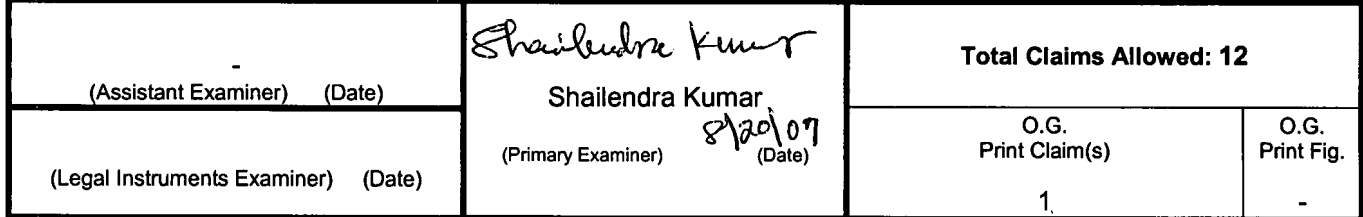 -
(Assistant Examiner) (Date)
(Legal Instruments Examiner) (Date)
Shailendra Kumar
Shailendra Kumar
8/20/07
(Primary Examiner) (Date)
Total Claims Allowed: 12
O.G.
Print Claim(s)
1
O.G.
Print Fig.
-